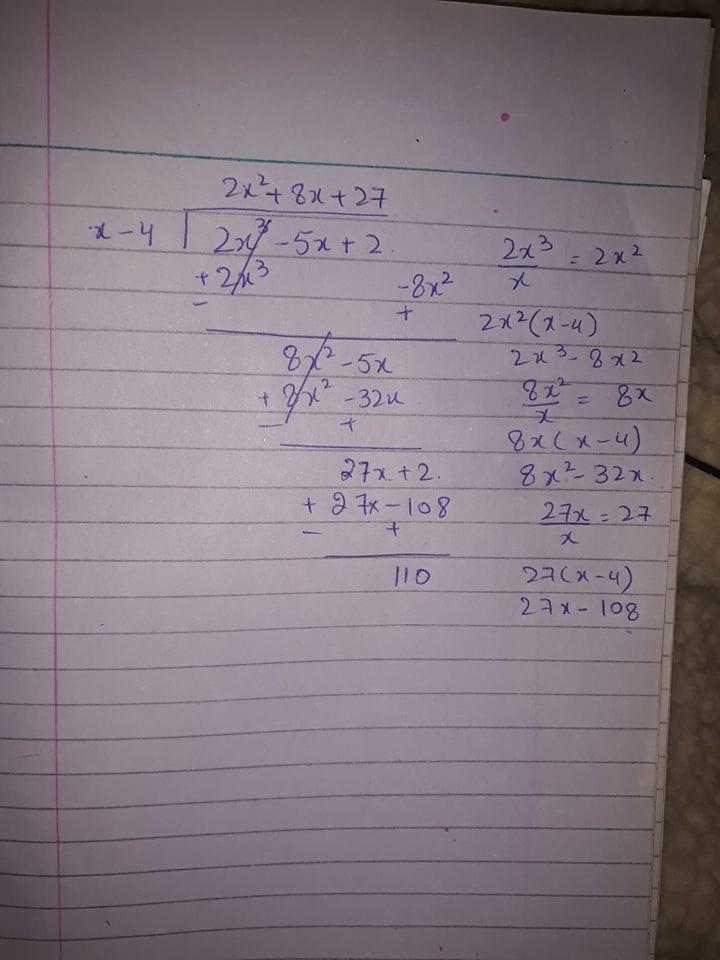 2x² + 8x + 27
x - 4 | 2x³ - 5x + 2
+ 2x³ - 8x²
- +
8x² - 5x
+ 8x² - 32x
- +
27x + 2.
+ 27x - 108
- +
110
2x³/x = 2x²
2x²(x-4)
2x³ - 8x²
8x²/x = 8x
8x(x-4)
8x² - 32x.
27x/x = 27
27(x-4)
27x - 108